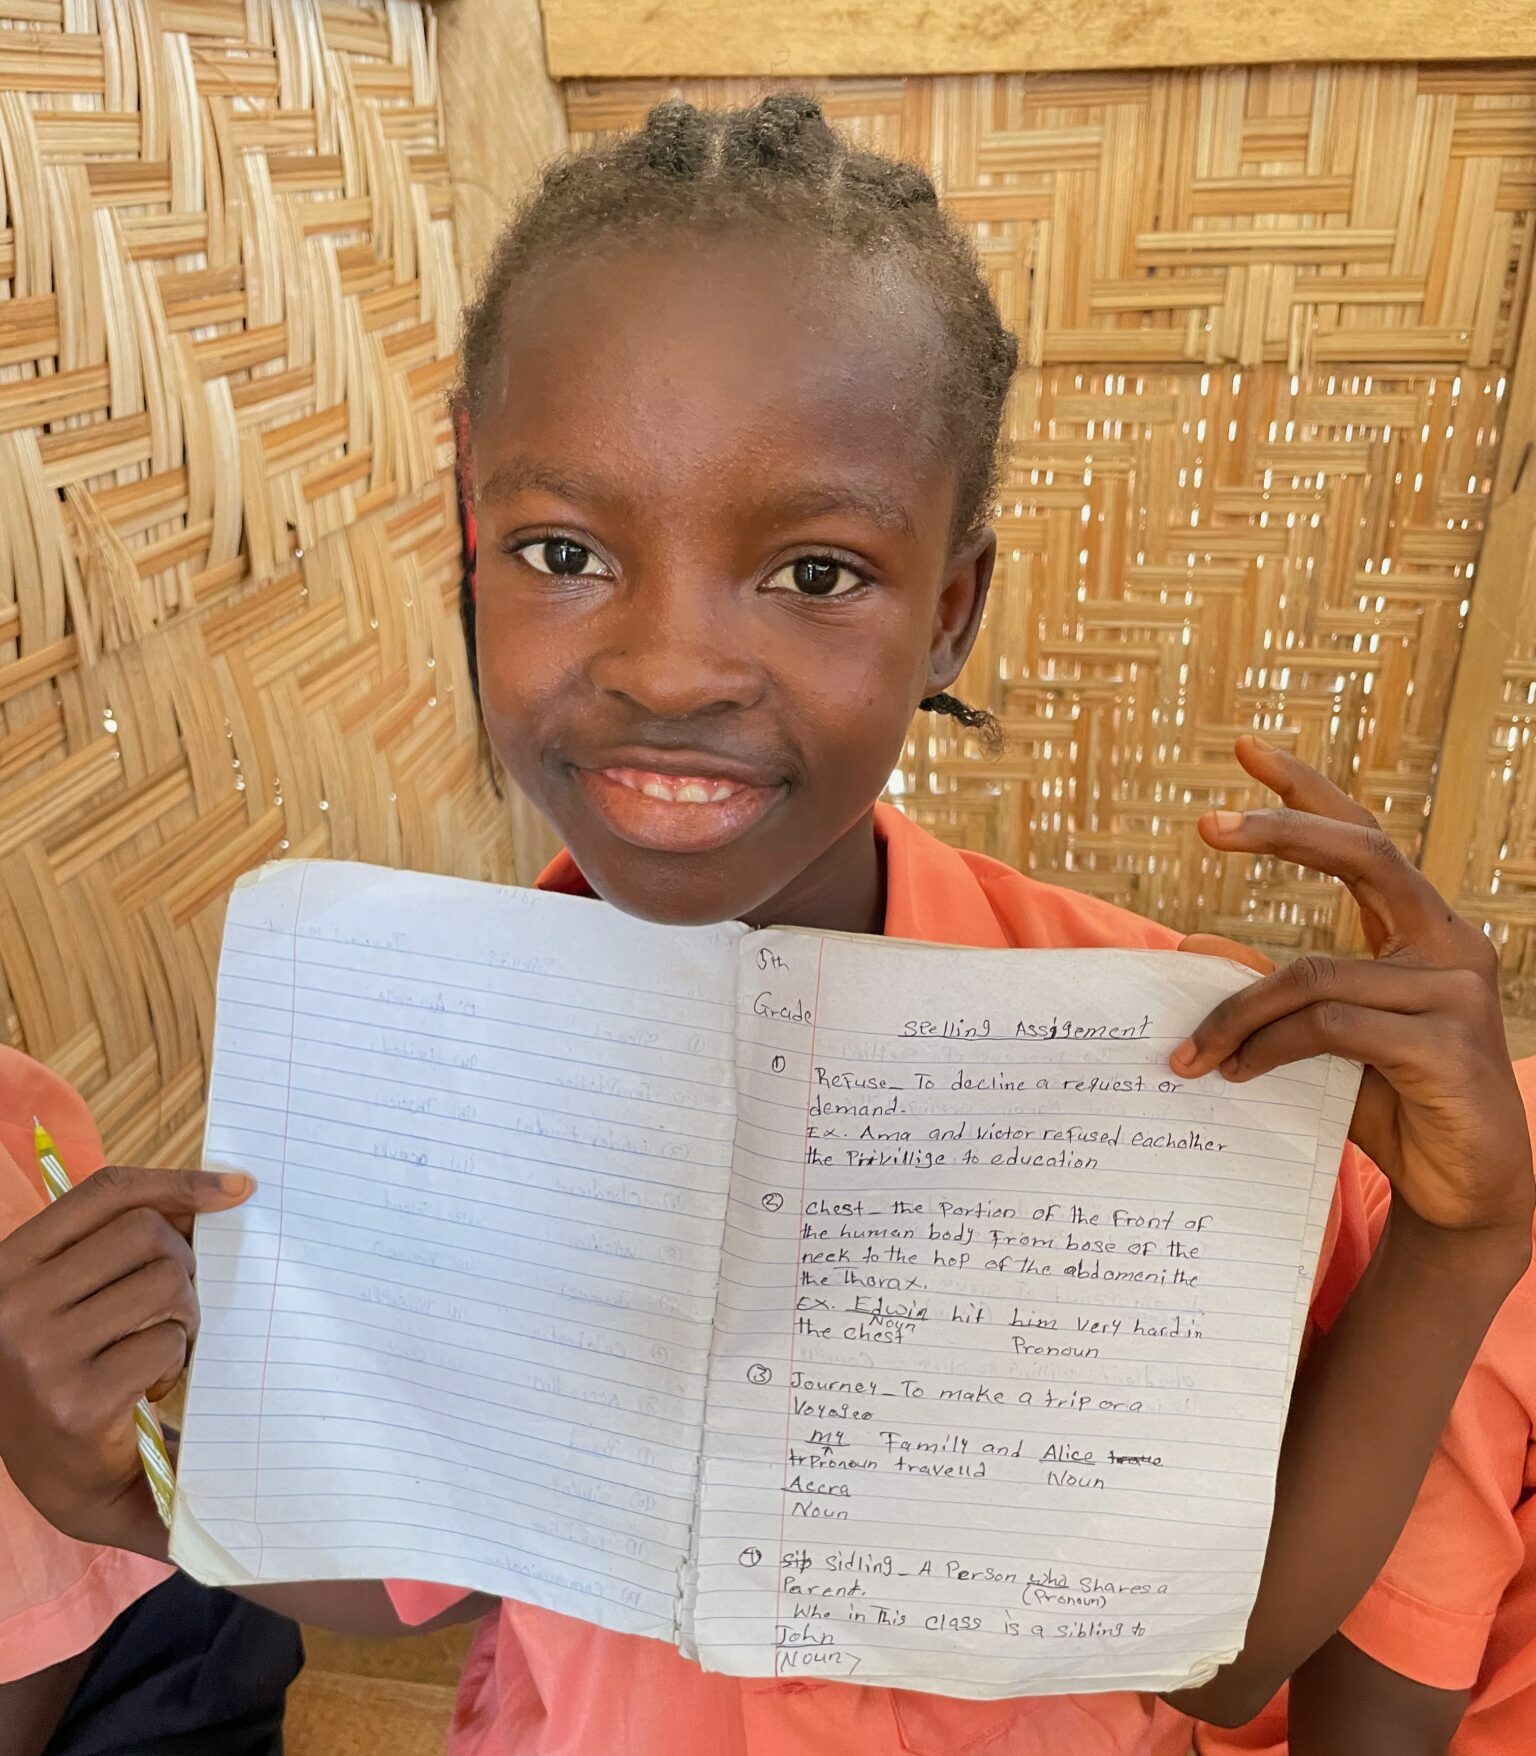 5th
Grade
Spelling Assigement
① Refuse_ To decline a request or
demand.
Ex. Ama and Victor refused eachother
the Privillige to education
② Chest_ the Portion of the Front of
the human body From base of the
neck to the hop of the abdomen; the
the Thorax.
EX. Edwin hit him very hard in
Noun
the chest
Pronoun
③ Journey_ To make a trip or a
Voyageo
my Family and Alice trave
trPronoun travelld Noun
Accra
Noun
④ Sip Sidling_ A Person who shares a
Parent. (Pronoun)
Who in This class is a sibling to
John
(Noun)